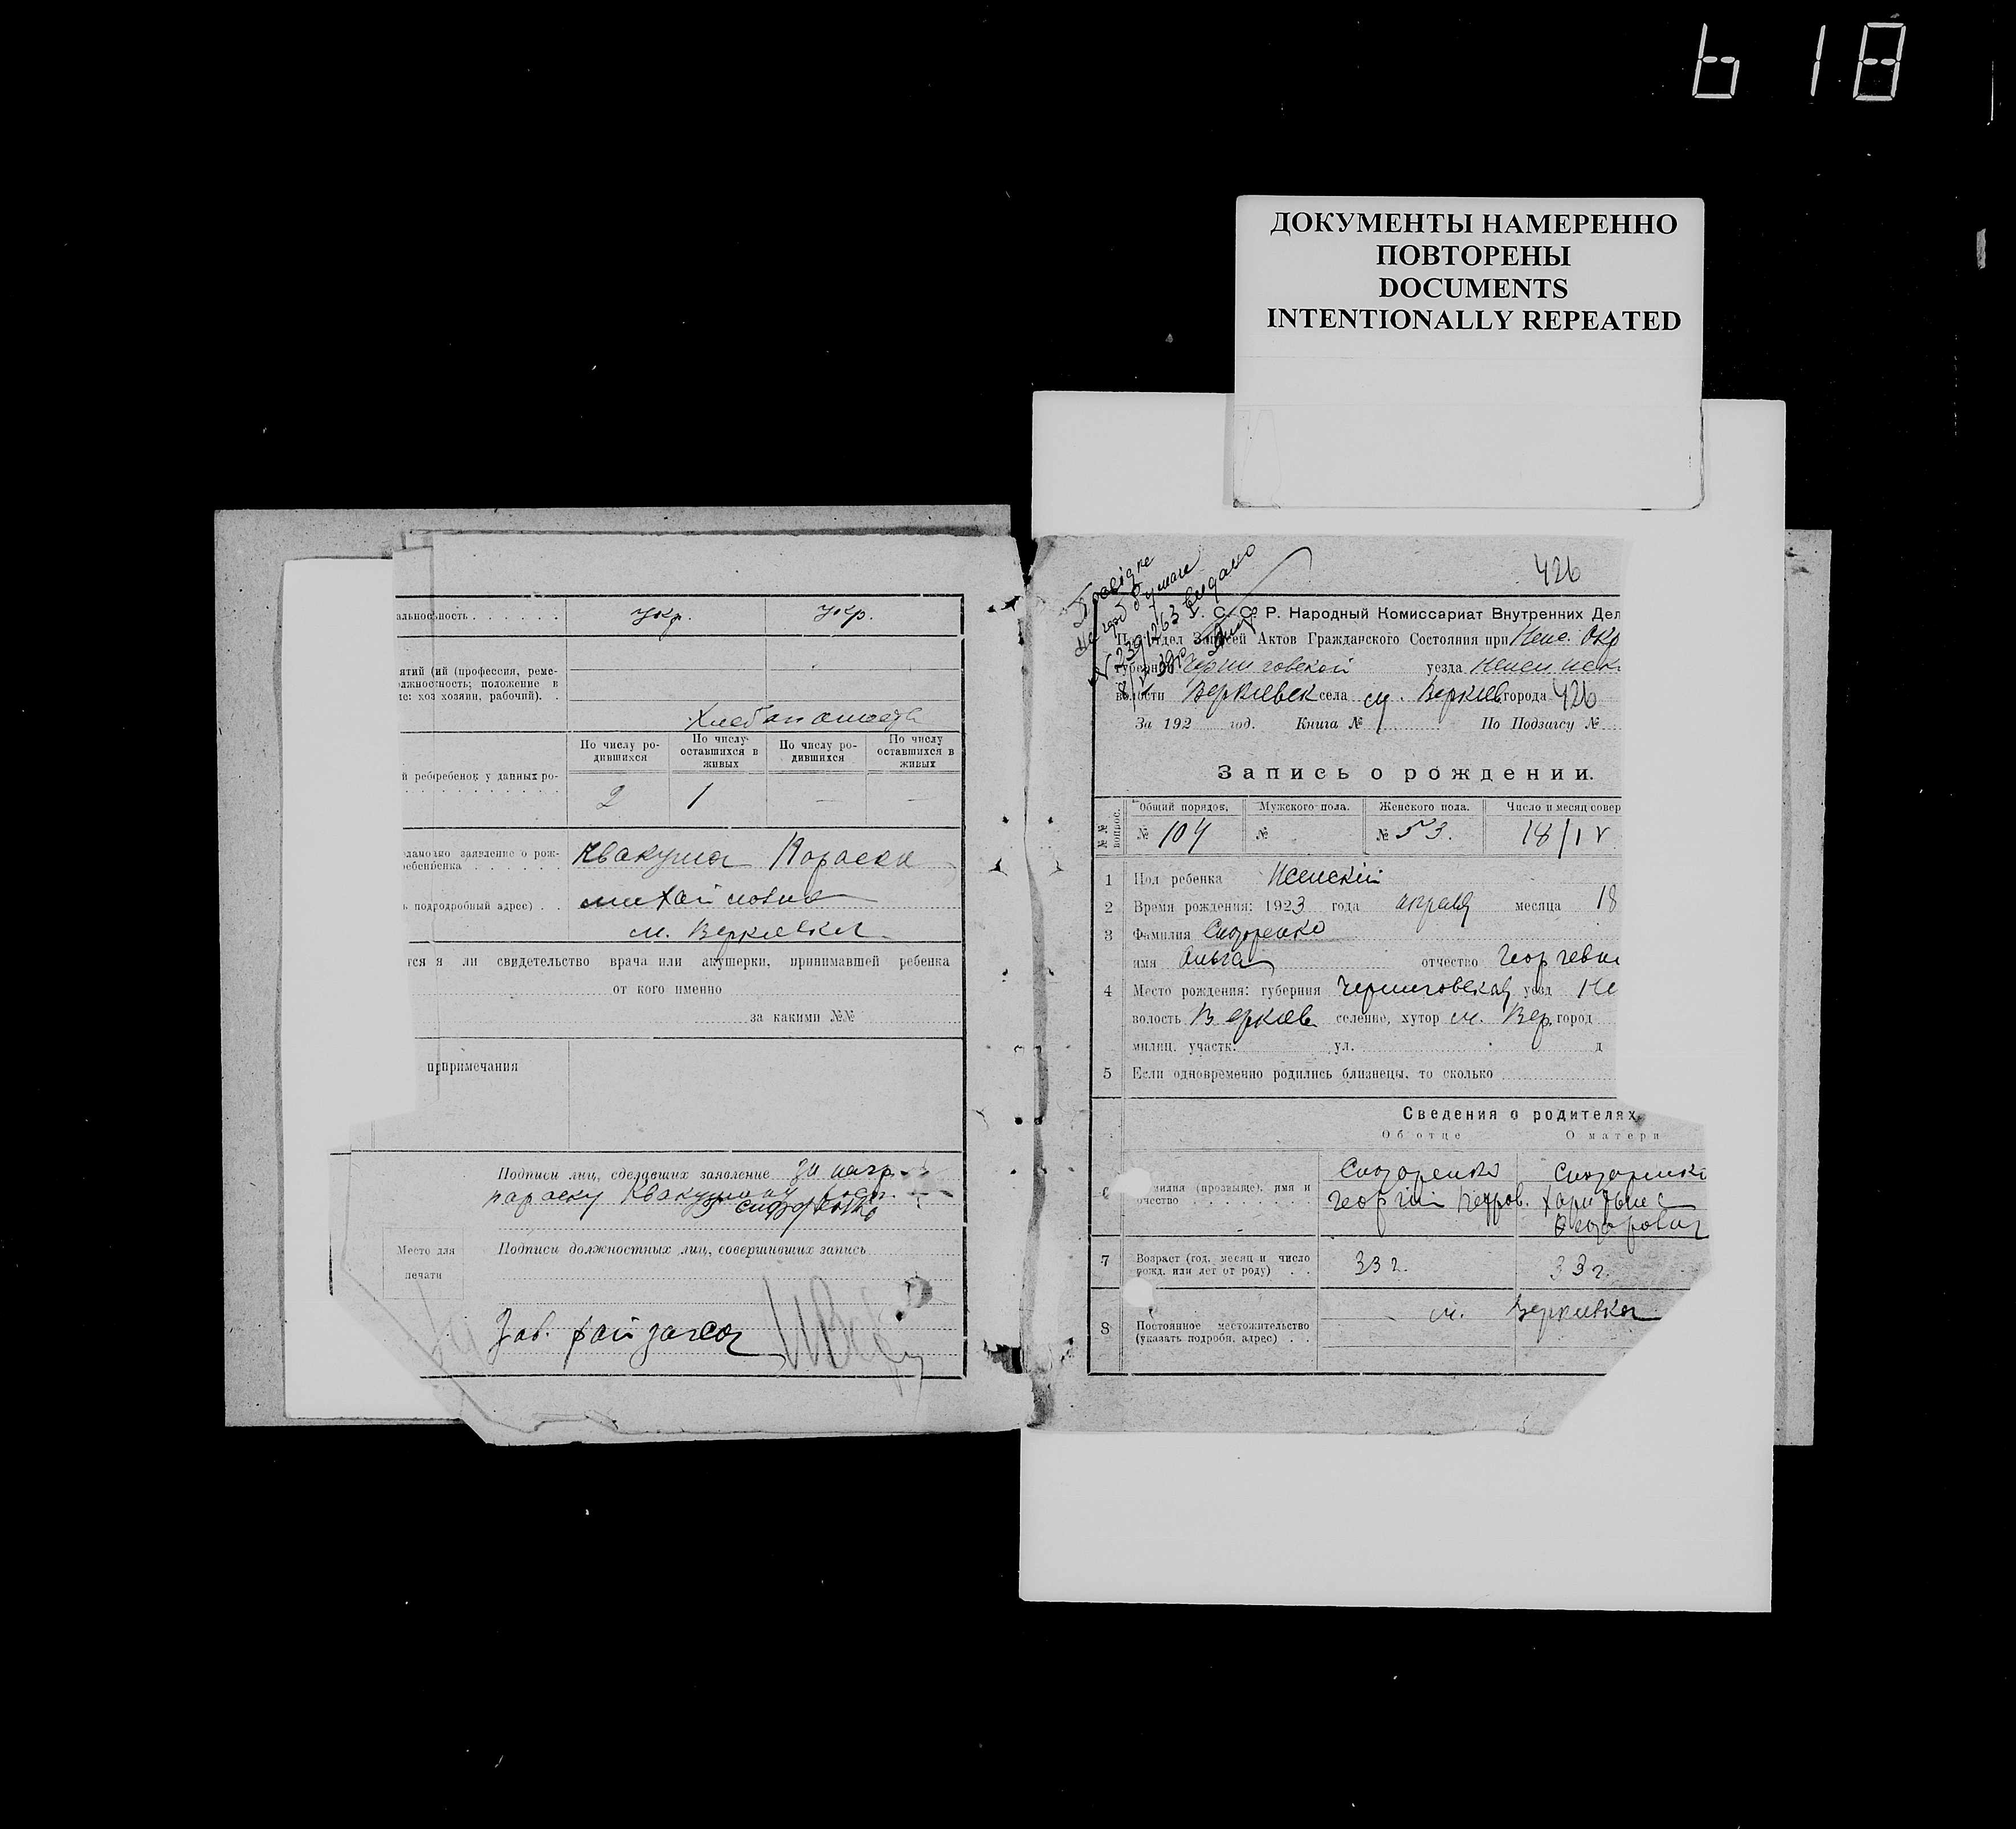 618
ДОКУМЕНТЫ НАМЕРЕННО
ПОВТОРЕНЫ
DOCUMENTS
INTENTIONALLY REPEATED
альность укр. укр.
ятий (ий (профессия, реме-
олжность; положение в
хозяин, рабочий).
По числу ро-
дившихся
По числу
оставшихся в
живых
По числу ро-
дившихся
По числу
оставшихся в
живых
й реб ребенок у данных ро-
2 1 — —
заявление о рож-
Квакуша Параска
подробный адрес)
м. Веркиевка
тся я ли свидетельство врача или акушерки, принимавшей ребенка
от кого именно
за какими №№
примечания
Подписи лиц, сделавших заявление за негр.
Сидоренко
Место для
печати
Подписи должностных лиц, совершивших запись
Зав. райзагса
426
У. С. С. Р. Народный Комиссариат Внутренних Дел
П отдел Записей Актов Гражданского Состояния при Неж. Окр
губернии Черниговской уезда Нежинск
волости Веркиевск села м. Веркиев города 426
За 192 год. Книга № По Подзагсу №
Запись о рождении.
№№ вопрос.
Общий порядок.
Мужского пола.
Женского пола.
Число и месяц совер
№ 104 № № 53. 18/IV
1 Пол ребенка Женский
2 Время рождения: 1923 года апреля месяца 18
3 Фамилия Сидоренко
имя Ольга отчество Георгевн
4 Место рождения: губерния Черниговская уезд Не
волость Веркиев селение, хутор м. Вер. город
милиц. участк. ул. д
5 Если одновременно родились близнецы, то сколько
Сведения о родителях
Об отце О матери
Сидоренко Сидоренко
6 милия (прозвище), имя и
очество
Георгий Петров.
7 Возраст (год, месяц и число
рожд. или лет от роду)
33 г. 33 г.
8 Постоянное местожительство
(указать подробн. адрес)
м. Веркиевка